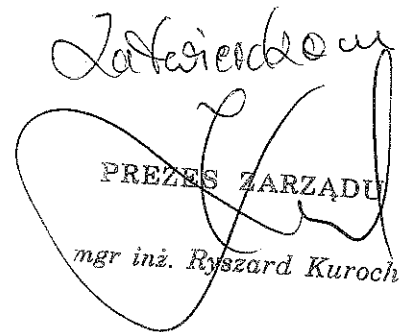 Zatwierdzam
PREZES ZARZĄDU
mgr inż. Ryszard Kuroch